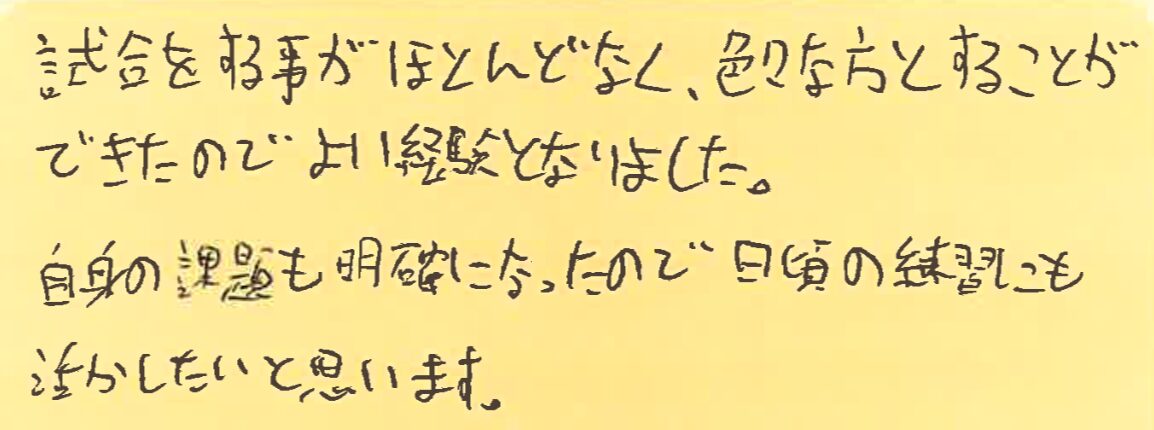 試合をする事がほとんどなく、色々な方とすることが
できたのでよい経験となりました。
自身の課題も明確になったので日頃の練習にも
活かしたいと思います。